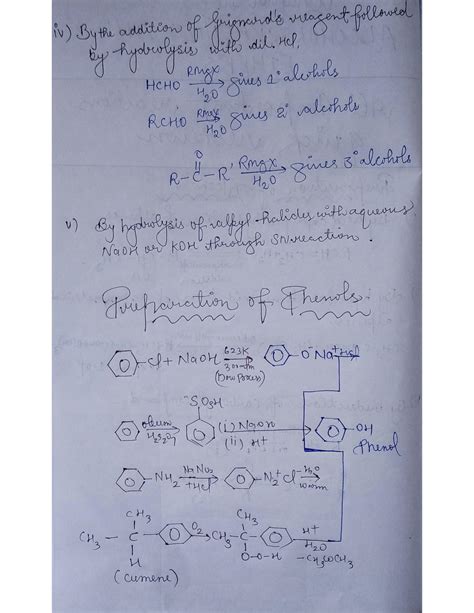 iv) By the addition of Grignard's reagent followed
by hydrolysis with dil. Hcl,
HCHO RMgX H2O gives 1° alcohols
RCHO RMgX H2O gives 2° alcohols
R-C-R' O RMgX H2O gives 3° alcohols
v) By hydrolysis of alkyl-halides with aqueous
NaOH or KOH through SN reaction.
Preparation of Phenols:
-Cl + NaOH 623K 300atm (Dow process) O⁻Na⁺ HCl
⁻SO3H
oleum H2S2O7 (i) NaOH (ii) H+ -OH
Phenol
-NH2 NaNO2 +HCl -N2⁺Cl⁻ H2O warm
CH3 CH3
CH3-C- O2 CH3-C- H+ H2O
H O-O-H -CH3COCH3
(Cumene)